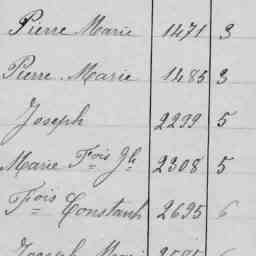 Pierre Marie 1471 3
Pierre Marie 1485 3
Joseph 2299 5
Marie Fois Jh 2308 5
Fois Constant 2695 6
Joseph